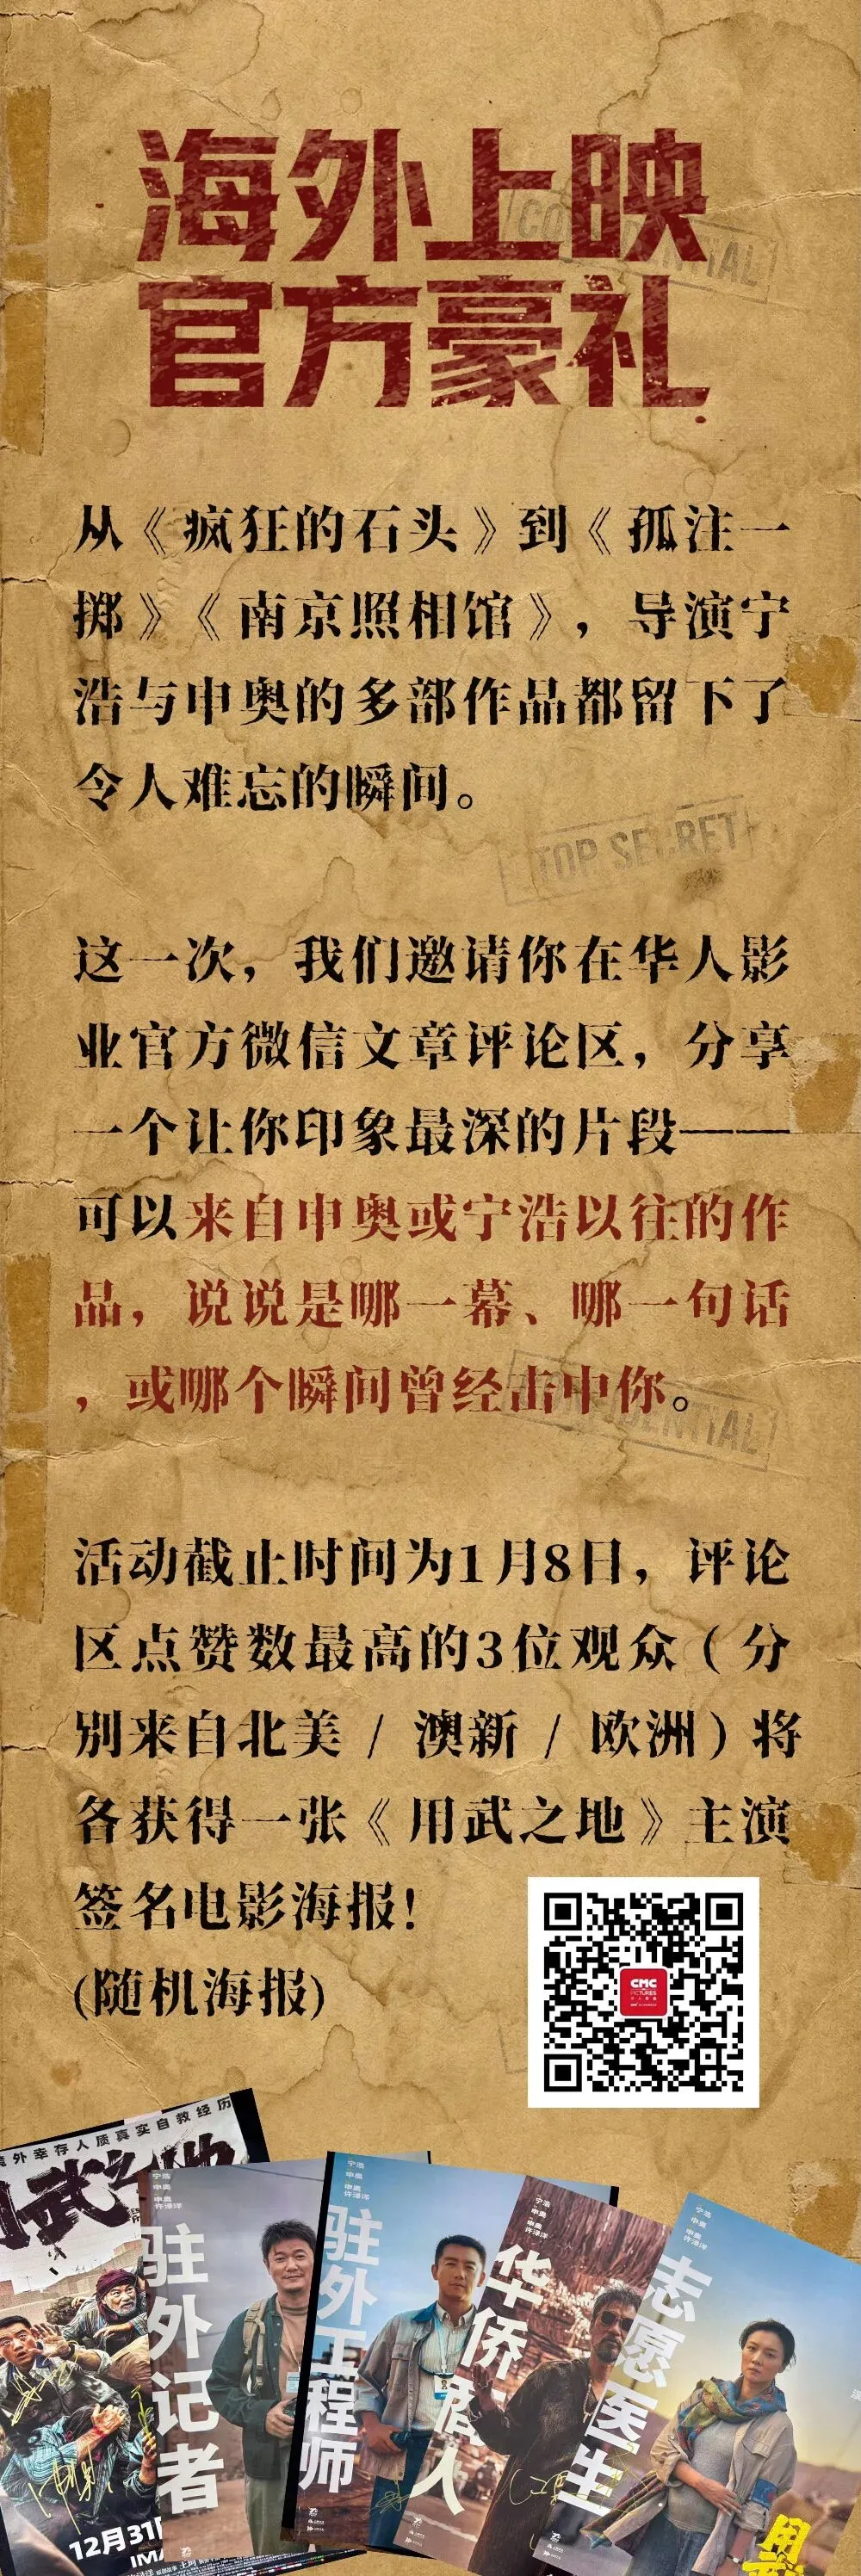 海外上映
官方豪礼
CONFIDENTIAL
从《疯狂的石头》到《孤注一
掷》《南京照相馆》，导演宁
浩与申奥的多部作品都留下了
令人难忘的瞬间。
TOP SECRET
这一次，我们邀请你在华人影
业官方微信文章评论区，分享
一个让你印象最深的片段——
可以来自申奥或宁浩以往的作
品，说说是哪一幕、哪一句话
，或哪个瞬间曾经击中你。
CONFIDENTIAL
活动截止时间为1月8日，评论
区点赞数最高的3位观众（分
别来自北美 / 澳新 / 欧洲）将
各获得一张《用武之地》主演
签名电影海报！
(随机海报)
CMC
PICTURES
外幸存人质真实自救经历
用武之地
12月31
IMA
宁浩
申奥
申奥
许渌洋
驻外记者
宁浩
申奥
申奥
许渌洋
驻外工程师
宁浩
申奥
申奥
许渌洋
华侨商人
宁浩
申奥
申奥
许渌洋
志愿医生
用武